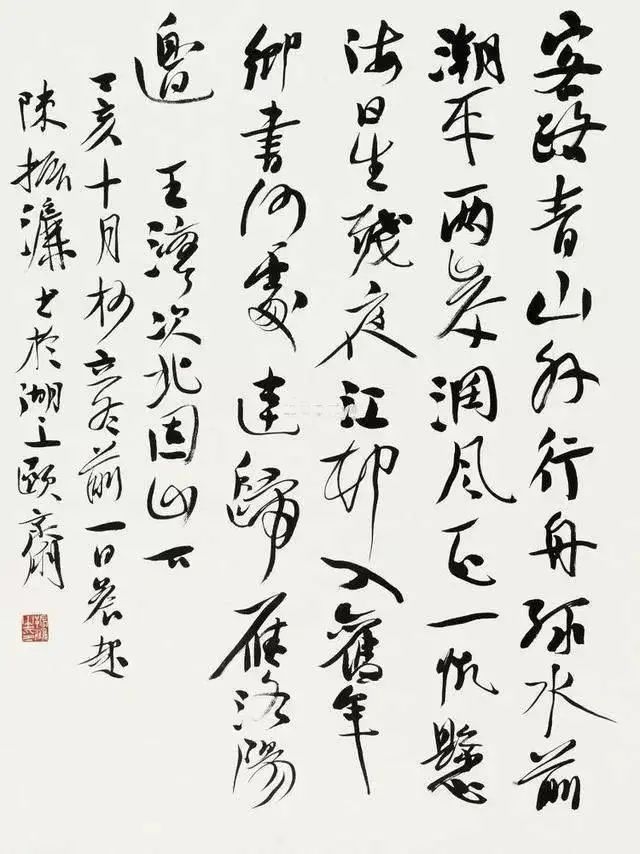 客路青山外行舟緑水前
潮平两岸濶風正一帆懸
海日生殘夜江邨入舊年
鄉書何處達歸雁洛陽
邊 王灣次北固山下
丁亥十月於立冬前一日晨起
陳振濂書於湖上頤齋